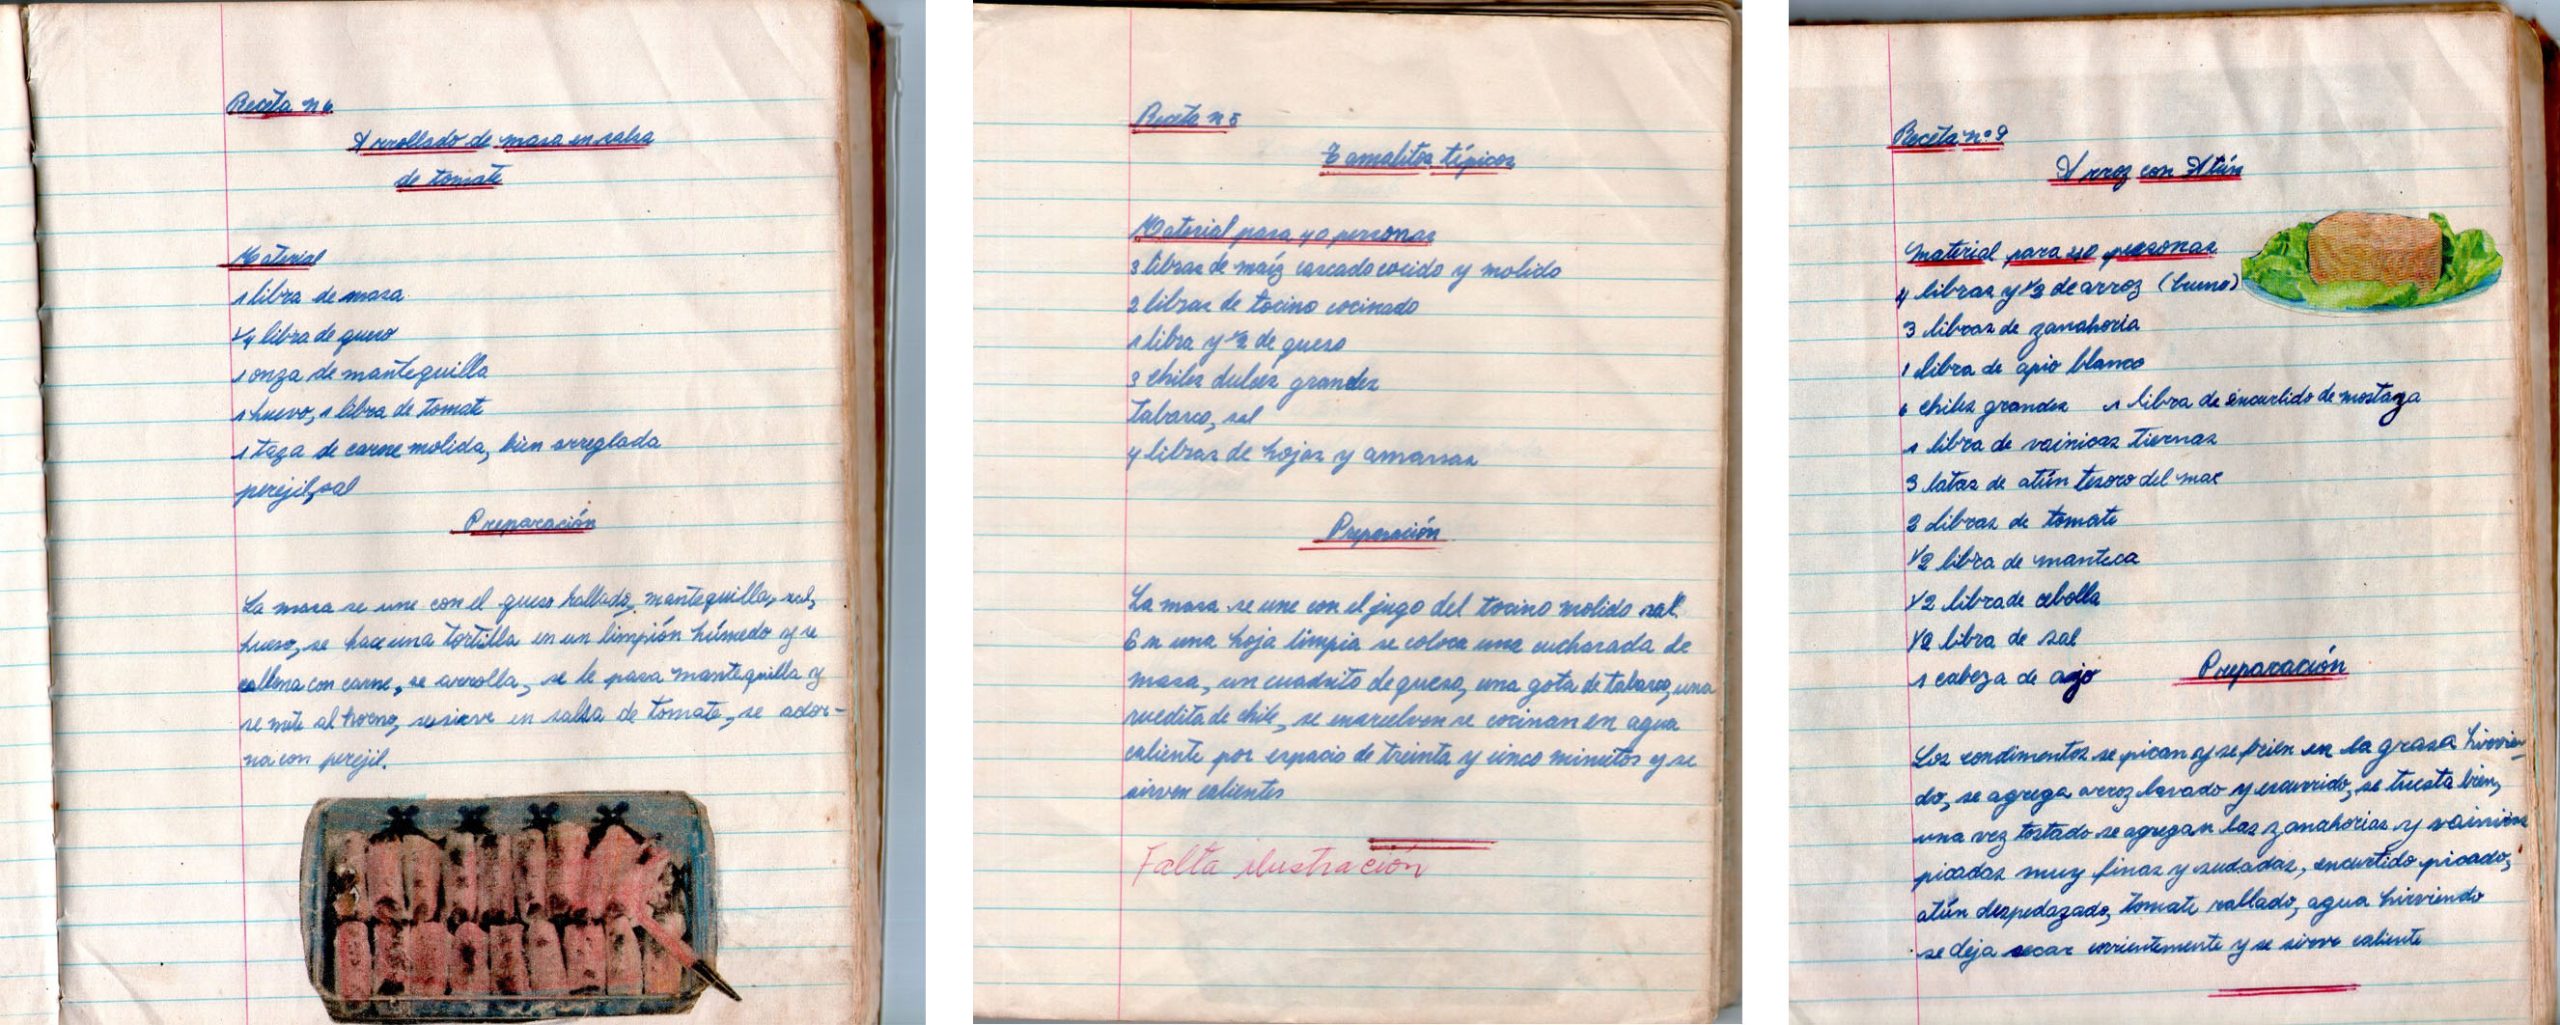 Receta n 6
Arrollado de masa en salsa
de tomate
Material
1 libra de masa
1/4 libra de queso
1 onza de mantequilla
1 huevo, 1 libra de tomate
1 taza de carne molida, bien arreglada
perejil, sal
Preparación
La masa se une con el queso rallado, mantequilla, sal,
huevo, se hace una tortilla en un limpión húmedo y se
rellena con carne, se arrolla, se le pasa mantequilla y
se mete al horno, se sirve en salsa de tomate, se ador-
na con perejil.
Receta n 5
Tamalitos típicos
Material para 40 personas
3 libras de maíz cascado cocido y molido
2 libras de tocino cocinado
1 libra y 1/2 de queso
3 chiles dulces grandes
Tabasco, sal
4 libras de hojas y amarras
Preparación
La masa se une con el jugo del tocino molido sal.
En una hoja limpia se coloca una cucharada de
masa, un cuadrito de queso, una gota de tabasco, una
ruedita de chile, se envuelven se cocinan en agua
caliente por espacio de treinta y cinco minutos y se
sirven calientes
Falta ilustración
Receta nº 9
Arroz con Atún
Material para 40 personas
4 libras y 1/2 de arroz (bueno)
3 libras de zanahoria
1 libra de apio blanco
6 chiles grandes 1 libra de encurtido de mostaza
1 libra de vainicas tiernas
3 latas de atún tesoro del mar
2 libras de tomate
1/2 libra de manteca
1/2 libra de cebolla
1/2 libra de sal
1 cabeza de ajo Preparación
Los condimentos se pican y se fríen en la grasa hirvien-
do, se agrega arroz lavado y escurrido, se tuesta bien,
una vez tostado se agregan las zanahorias y vainicas
picadas muy finas y sudadas, encurtido picado,
atún despedazado, tomate rallado, agua hirviendo
se deja secar corrientemente y se sirve caliente